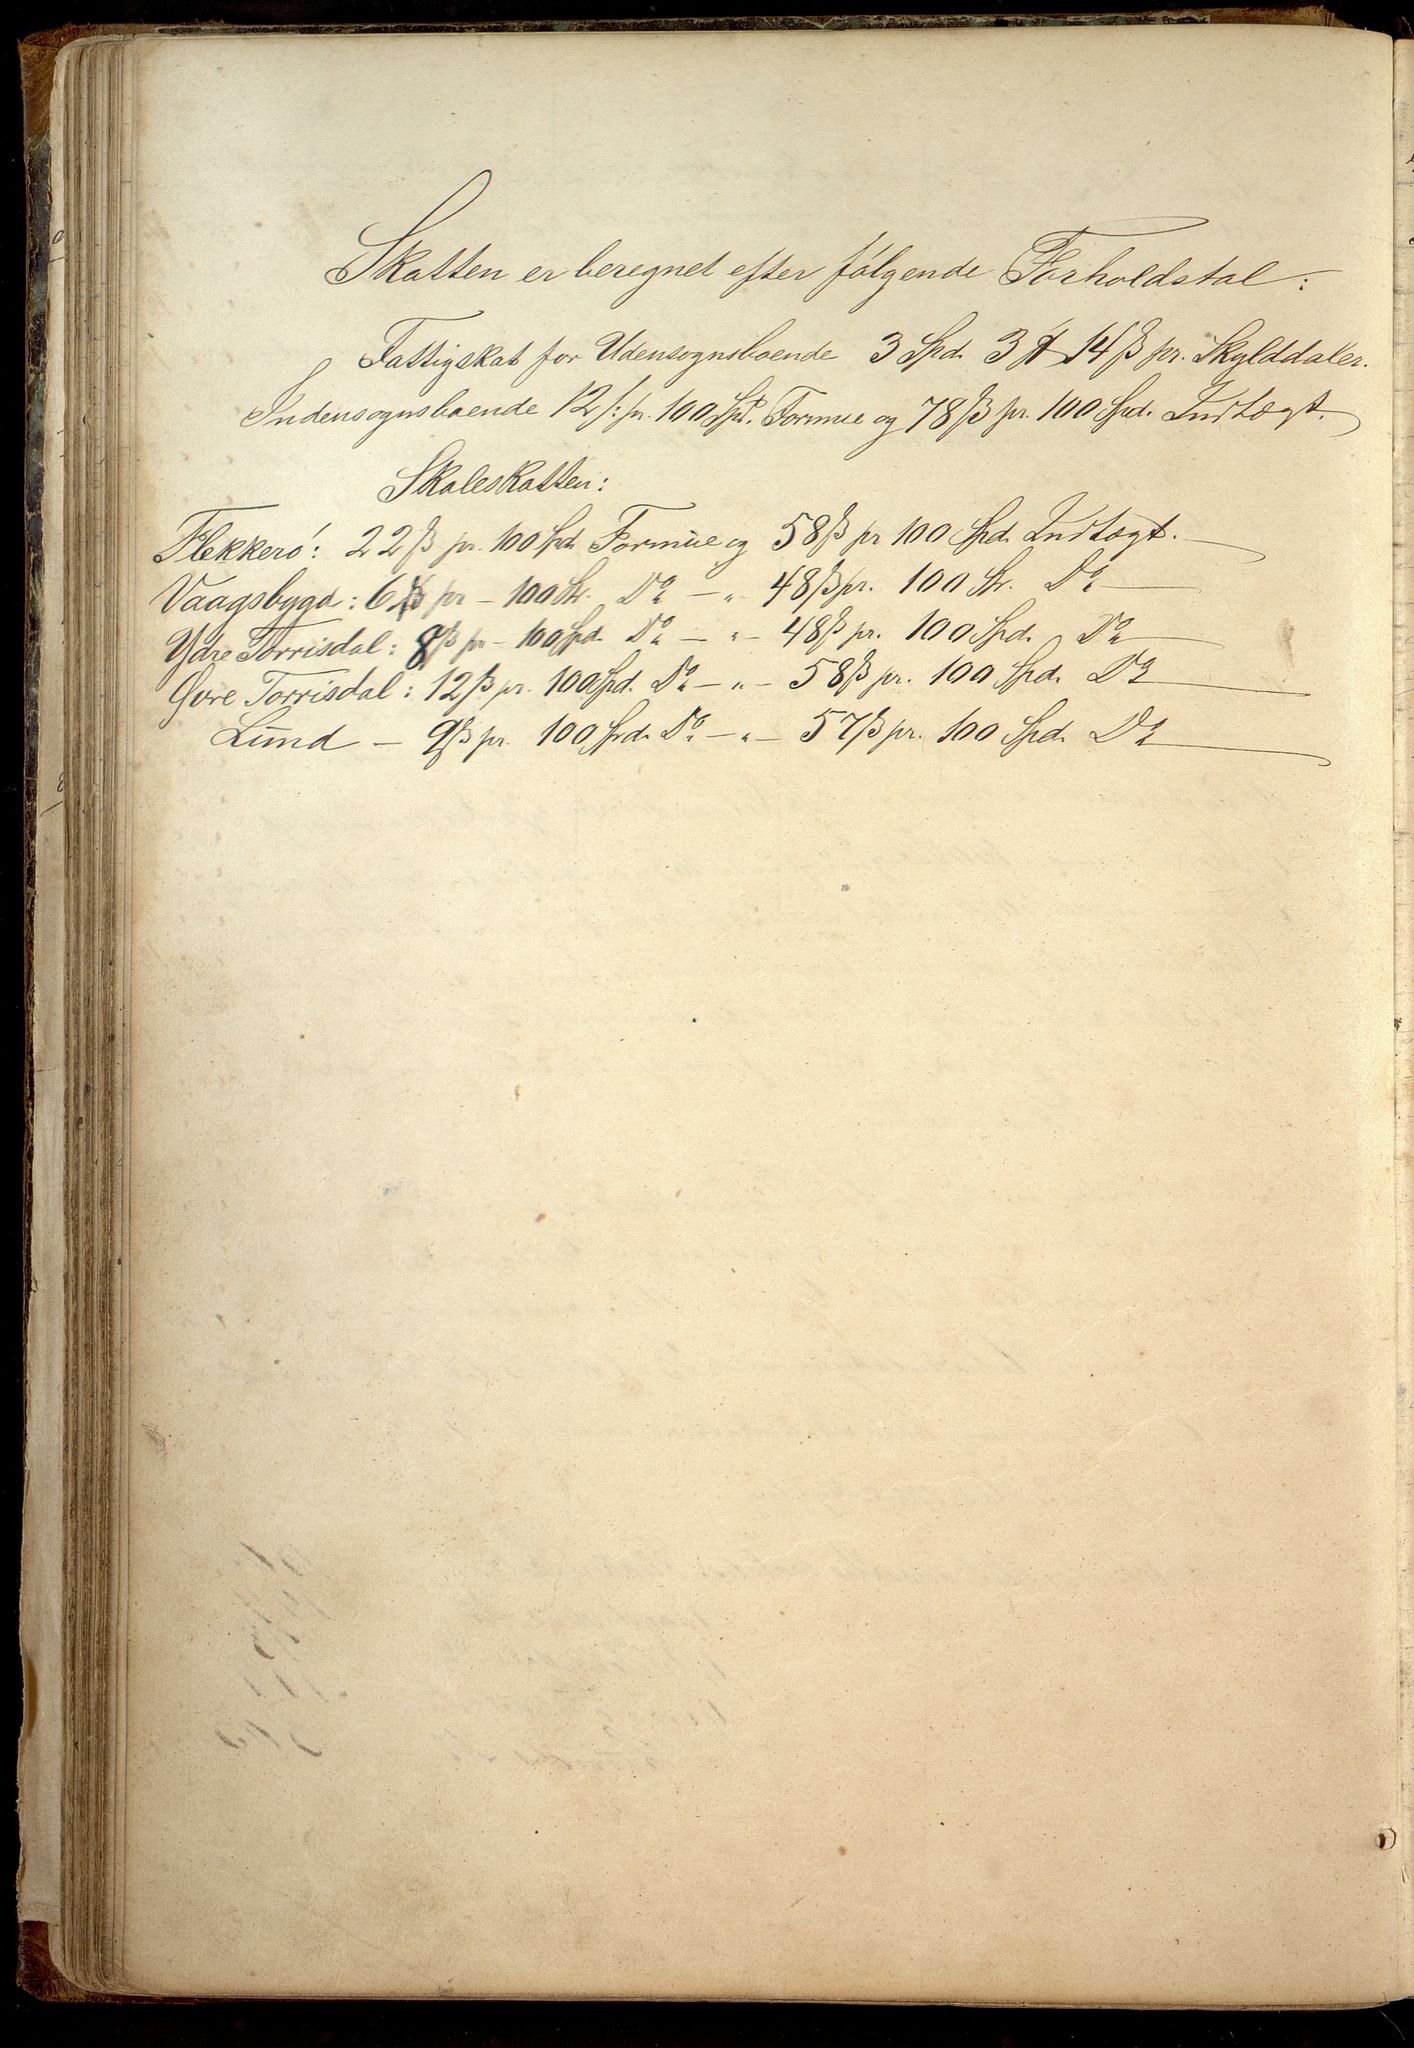 Skatten er beregnet efter følgende Forholdstal:
Fattigskat for Udensognsboende 3 Spd. 3 ₰ 14 ß pr. Skylddaler.
Indensognsboende 12 ß: pr. 100 Spd. Formue og 78 ß pr. 100 Spd. Indtægt.
Skoleskatten:
Flekkerö: 22 ß pr. 100 Spd. Formue og 58 ß pr 100 Spd. Indtægt.
Vaagsbygd: 6 ß pr – 100 Do – " 48 ß pr. 100 Do
Ydre Torrisdal: 8 ß pr – 100 Spd. Do – " – 48 ß pr. 100 Spd. Do
Øvre Torrisdal: 12 ß pr. 100 Spd. Do – " – 58 ß pr. 100 Spd. Do
Lund – 9 ß pr. 100 Spd. Do – " – 57 ß pr. 100 Spd. Do